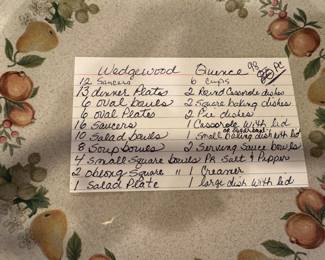 Wedgewood Quince 98 PC
12 Saucers 6 Cups
13 dinner Plates 2 Round Casserole dishes
6 oval bowls 2 Square baking dishes
6 oval Plates 2 Pie dishes
16 Saucers 1 Casserole with lid
or Sugar bowl
10 Salad bowls 1 Small baking dish with lid
8 Soup bowls 2 Serving Sauce bowls
4 Small Square bowls PR Salt & Pepper
2 oblong Square " 1 Creamer
1 Salad Plate 1 large dish with lid